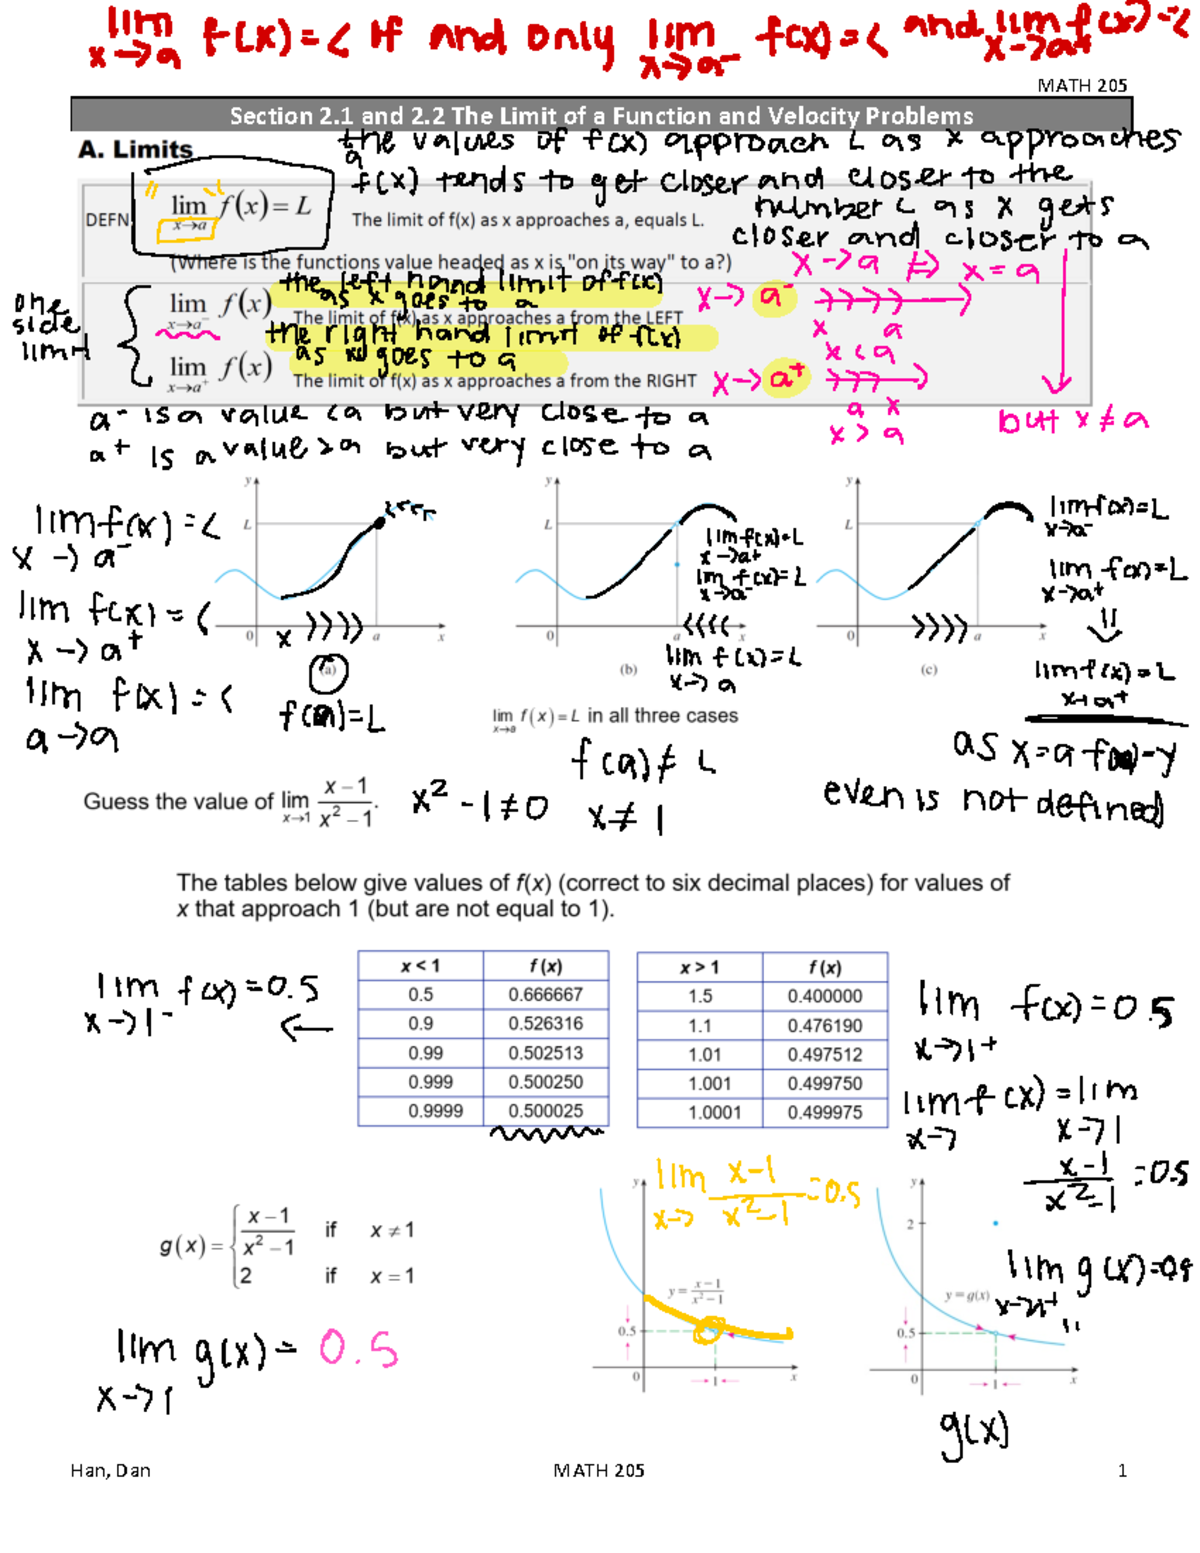 lim f(x) = L if and only lim f(x) = L and lim f(x) = L
x→a x→a⁻ x→a⁺
MATH 205
Section 2.1 and 2.2 The Limit of a Function and Velocity Problems
A. Limits
the values of f(x) approach L as x approaches
a
f(x) tends to get closer and closer to the
number L as x gets
closer and closer to a
DEFN
lim f(x) = L
x→a
The limit of f(x) as x approaches a, equals L.
(Where is the functions value headed as x is "on its way" to a?)
x→a ⇏ x = a
one
side
limit
lim f(x)
x→a⁻
the left hand limit of f(x)
as x goes to a
The limit of f(x) as x approaches a from the LEFT
x→ a⁻
x a
x < a
lim f(x)
x→a⁺
the right hand limit of f(x)
as x goes to a
The limit of f(x) as x approaches a from the RIGHT
x→ a⁺
a x
x > a
but x ≠ a
a⁻ is a value < a but very close to a
a⁺ is a value > a but very close to a
lim f(x) = L
x → a⁻
lim f(x) = L
x → a⁺
lim f(x) = L
a → a
y
L
0
x
a
x
(a)
f(a) = L
y
L
0
a
x
(b)
lim f(x) = L
x→a⁺
lim f(x) = L
x→a⁻
lim f(x) = L
x→a
y
L
0
a
x
(c)
lim f(x) = L
x→a⁻
lim f(x) = L
x→a⁺
⇓
lim f(x) = L
x→a⁺
lim f(x) = L in all three cases
x→a
f(a) ≠ L
as x = a f(x) = y
even is not defined
Guess the value of lim x − 1 / x² − 1.
x→1
x² − 1 ≠ 0
x ≠ 1
The tables below give values of f(x) (correct to six decimal places) for values of
x that approach 1 (but are not equal to 1).
lim f(x) = 0.5
x→1⁻
←
x < 1 f (x)
0.5 0.666667
0.9 0.526316
0.99 0.502513
0.999 0.500250
0.9999 0.500025
x > 1 f (x)
1.5 0.400000
1.1 0.476190
1.01 0.497512
1.001 0.499750
1.0001 0.499975
lim f(x) = 0.5
x→1⁺
lim f(x) = lim
x→ x→1
x−1 / x²−1 = 0.5
g(x) = { x − 1 / x² − 1 if x ≠ 1
2 if x = 1
lim g(x) = 0.5
x→1
lim x−1 / x²−1 = 0.5
x→
y
y = x−1 / x²−1
0.5
0
1
x
y
2
y = g(x)
0.5
0
1
x
lim g(x) =
g(x)
Han, Dan
MATH 205
1